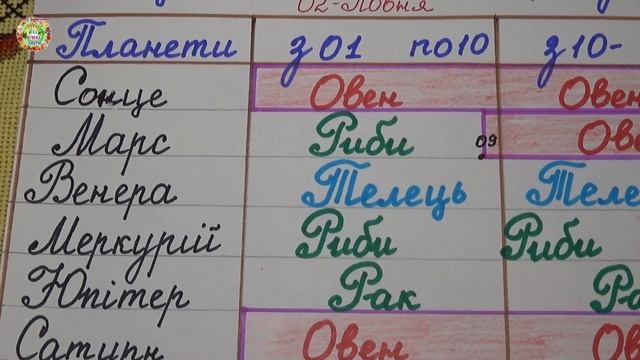 02-Повня
Планети з 01 по 10 з 10-
Сонце Овен Овен
Марс Риби 09 Ове
Венера Телець Теле
Меркурій Риби Риби
Юпітер Рак Ра
Сатурн Овен Ов